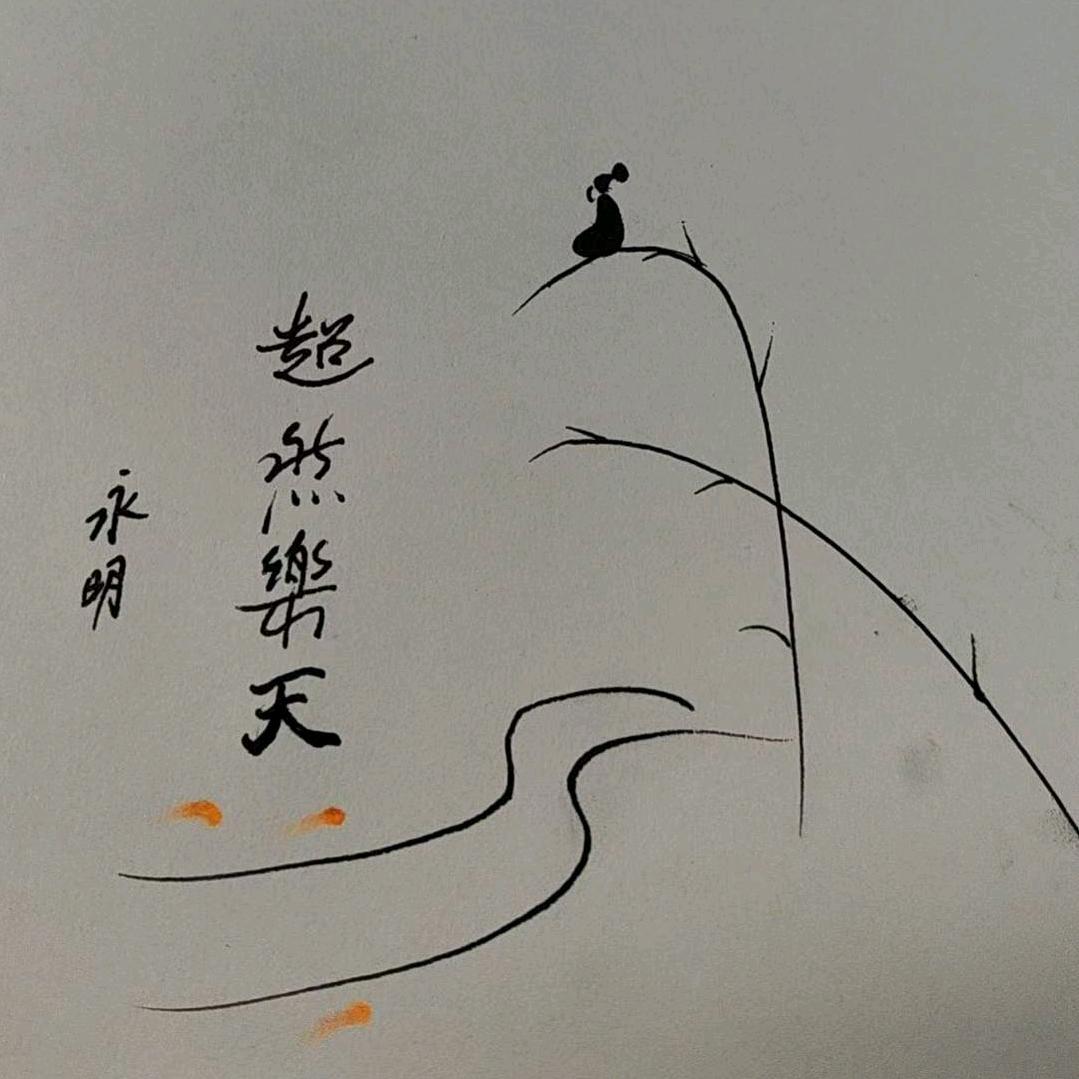 超然樂天
永明